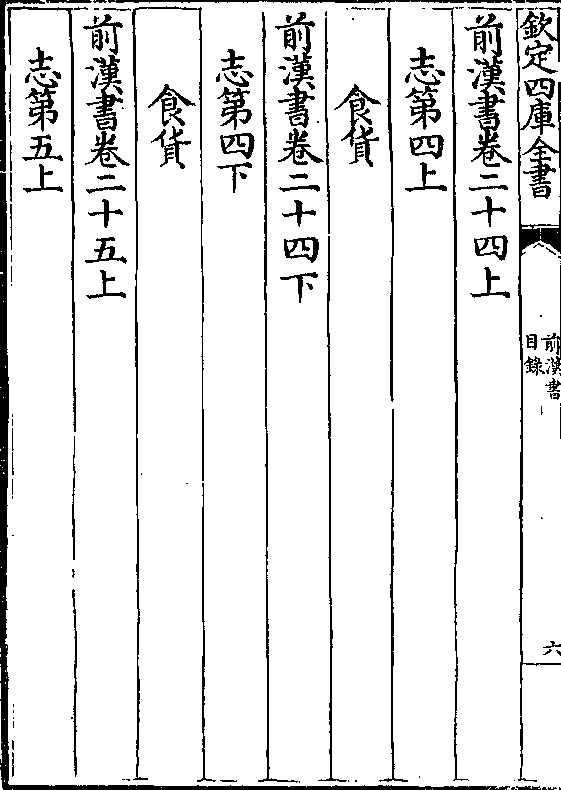 欽定四庫全書
前漢書
目錄
六
前漢書卷二十四上
志第四上
食貨
前漢書卷二十四下
志第四下
食貨
前漢書卷二十五上
志第五上